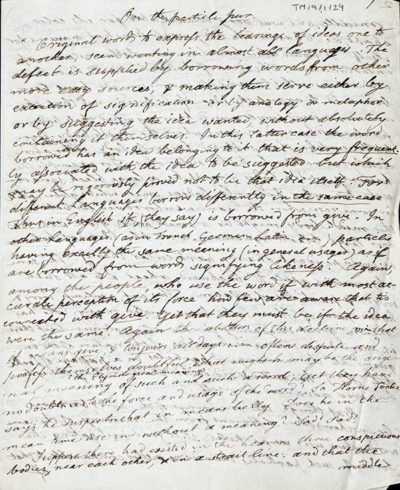 TM/19/1129
On the particle pur
Original words to express the bearings of ideas one to
another seem wanting in almost all languages. The
defect is supplied by borrowing words from other
more easy sources, & making them serve either by
extention of signification or by analogy or metaphor
or by suggesting the idea wanted without absolutely
containing it themselves. In this latter case the word
borrowed has an idea belonging to it that is very frequent
ly associated with the idea to be suggested but which
may be rigorously proved not to be that idea itself. And
different languages borrow differently in the same case
Thus in English if (they say) is borrowed from give. In
other languages (as in French, German, Latin &c) particles
having exactly the same meaning (in general usage) as if
are borrowed from words signifying likeness. Again
among the people, who use the word if with most ac
curate perception of its force how few are aware that its
connected with give. Yet that they must be if the idea
were the same. Again the authors of this doctrine, that
if means give &c
profess themselves doubtful what might be the origi
nal meaning of such and such a word, yet they have
no doubt as to the force and usage of the word. So Horne Tooke
says he suspects that in means
mean time use in without a meaning? Sad, Sad!
Suppose there had existed in the heavens three conspicious
bodies, near each other, & in a strait line: and that the
middle